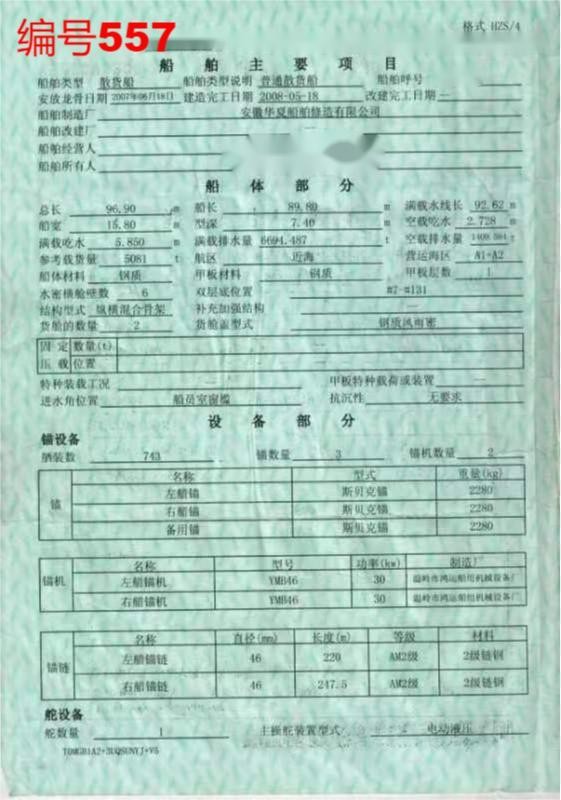 编号557
格式 HZS/4
船舶主要项目
船舶类型 散货船 船舶类型说明 普通散货船 船舶呼号
安放龙骨日期 2007年06月18日 建造完工日期 2008-05-18 改建完工日期 —
船舶制造厂 安徽华夏船舶修造有限公司
船舶改建厂 —
船舶经营人
船舶所有人
船体部分
总长 96.90 m 船长 89.80 m 满载水线长 92.62 m
船宽 15.80 m 型深 7.40 m 空载吃水 2.728 m
满载吃水 5.850 m 满载排水量 6694.487 t 空载排水量 t
参考载货量 5081 t 航区 近海 营运海区 A1+A2
船体材料 钢质 甲板材料 钢质 甲板层数 1
水密横舱壁数 6 双层底位置 #7-#131
结构型式 纵横混合骨架 补充加强结构 —
货舱的数量 2 货舱盖型式 钢质风雨密
固定 数量(t) —
压载 位置 —
特种装载工况 — 甲板特种载荷或装置 —
进水角位置 船员室窗槛 抗沉性 无要求
设备部分
锚设备
舾装数 743 锚数量 3 锚机数量 2
名称 型式 重量(kg)
锚 左艏锚 斯贝克锚 2280
右艏锚 斯贝克锚 2280
备用锚 斯贝克锚 2280
名称 型号 功率(kw) 制造厂
锚机 左艏锚机 YMB46 30 温岭市鸿运船用机械设备厂
右艏锚机 YMB46 30 温岭市鸿运船用机械设备厂
名称 直径(mm) 长度(m) 等级 材料
锚链 左艏锚链 46 220 AM2级 2级链钢
右艏锚链 46 247.5 AM2级 2级链钢
舵设备
舵数量 1 主操舵装置型式 电动液压
T0MGB1A2+3UQSUNYJ+V5